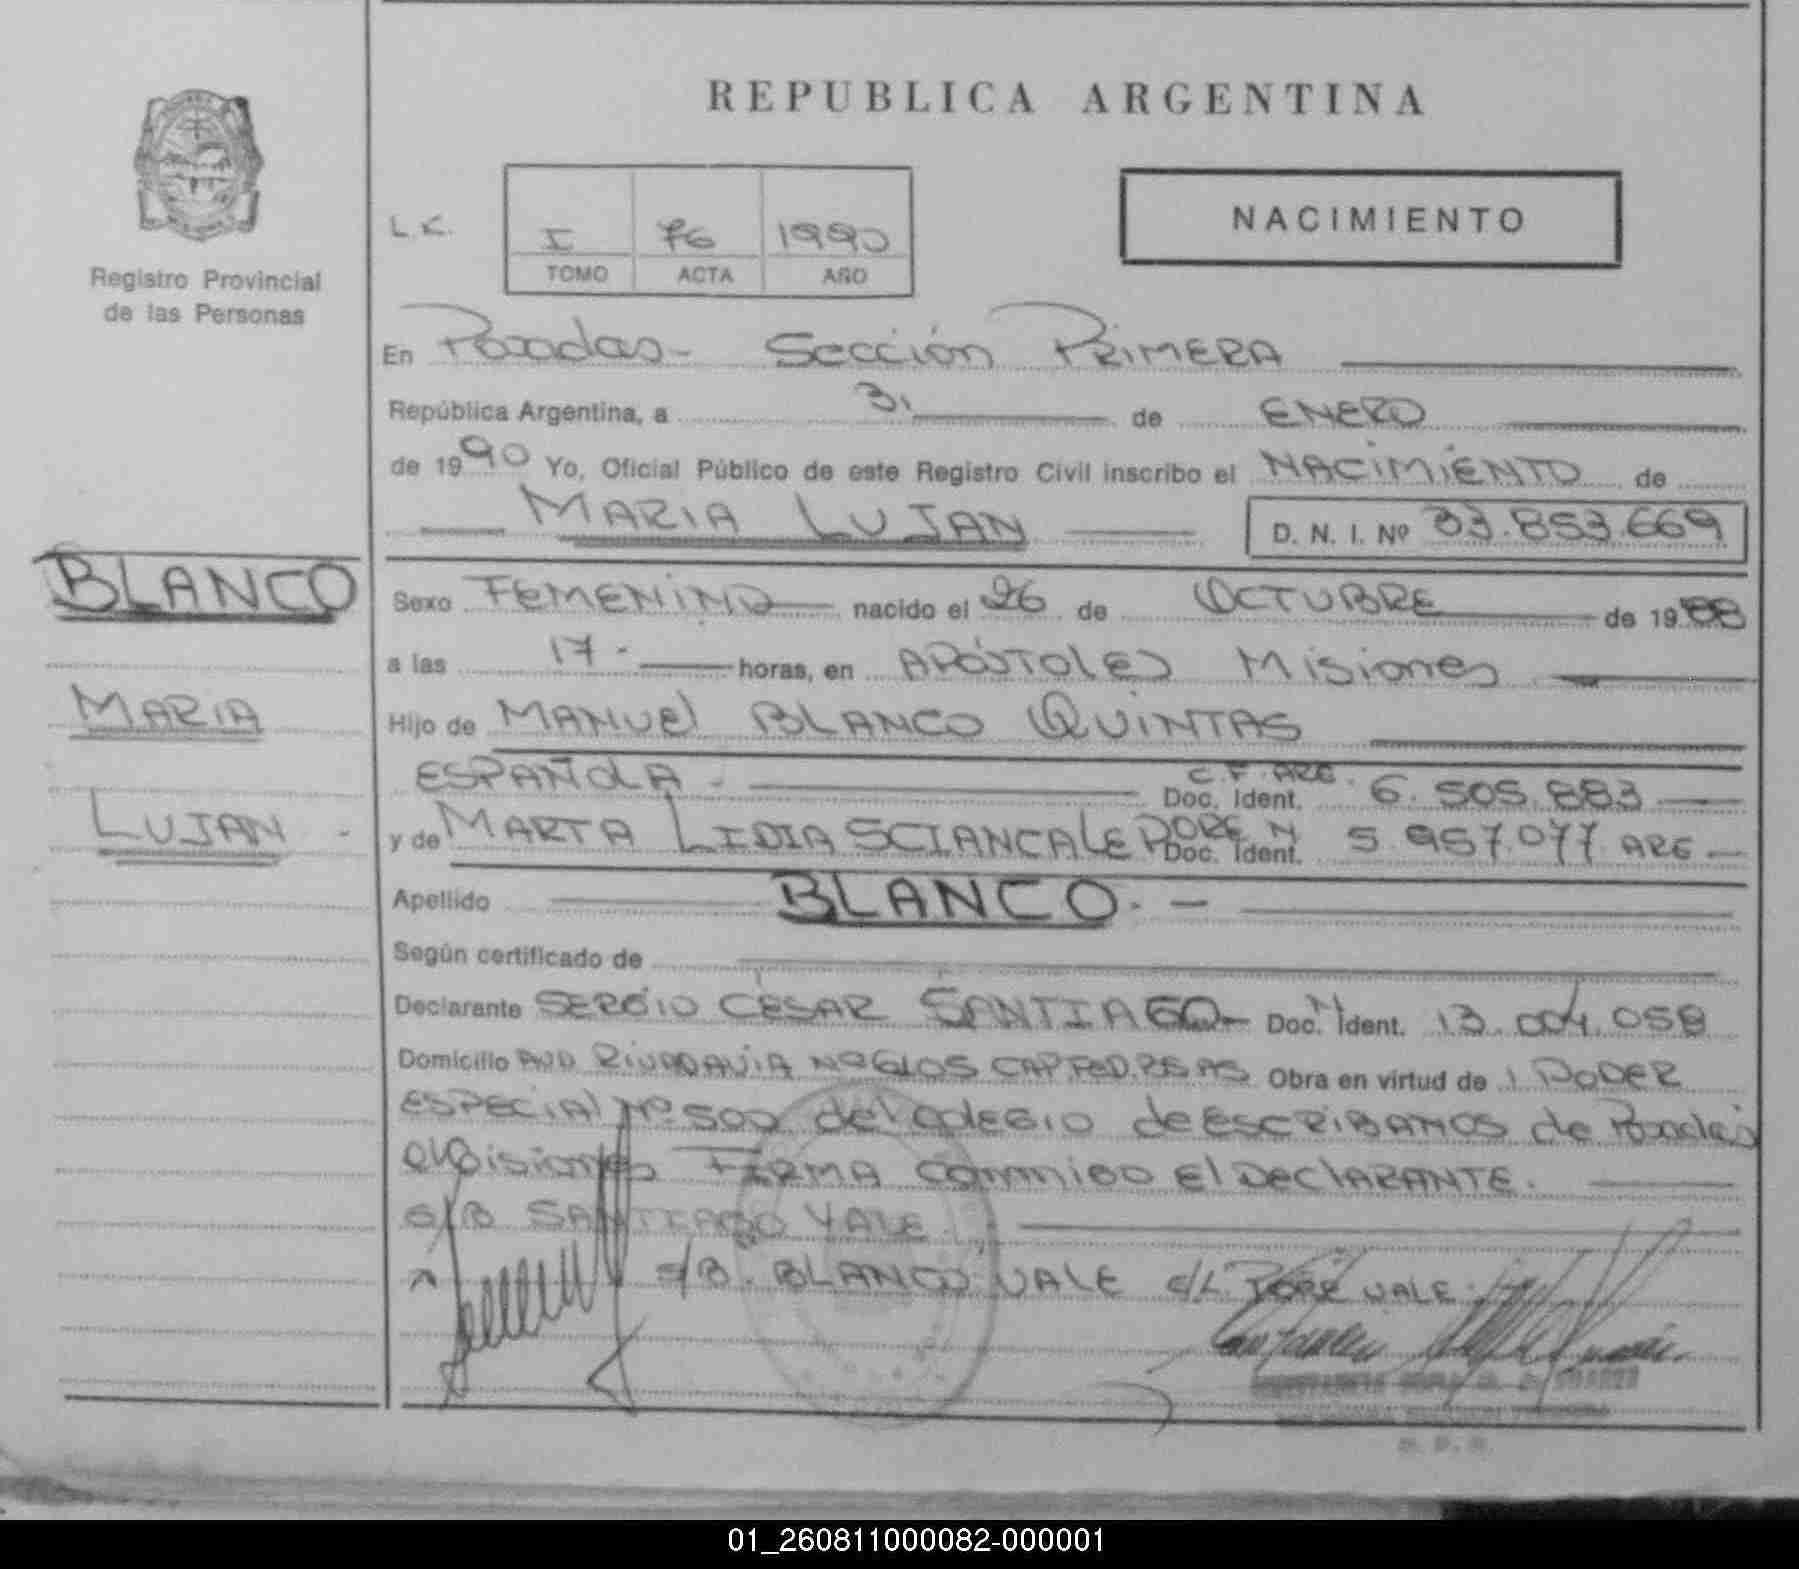 REPUBLICA ARGENTINA
L.K.
I 76 1990
TOMO ACTA AÑO
NACIMIENTO
Registro Provincial
de las Personas
En Posadas- Sección PRIMERA
República Argentina, a 31 de ENERO
de 1990 Yo, Oficial Público de este Registro Civil inscribo el NACIMIENTO de
MARIA LUJAN D. N. I. Nº 33.853.669
BLANCO
MARIA
LUJAN -
Sexo FEMENINO nacido el 26 de OCTUBRE de 1988
a las 17- horas, en APÓSTOLES Misiones
Hijo de MANUEL BLANCO QUINTAS
ESPAÑOLA - Doc. Ident. C.F. ARG. 6.505.883
y de MARTA LIDIA SCIANCALEPORE N Doc. Ident. 5.957.077 ARG
Apellido BLANCO. -
Según certificado de
Declarante SERGIO CÉSAR SANTIAGO Doc. Ident. N 13.004.058
Domicilio AVD RIVADAVIA Nº 6105 CAP.FED.BS AS Obra en virtud de 1 PODER
ESPECIAL Nº 500 del COLEGIO de ESCRIBANOS de Posadas
Misiones FIRMA conmigo El DEClARANTE.
S/B SANTIAGO VALE
S/B. BLANCO VALE E/L. PORE VALE
01_260811000082-000001